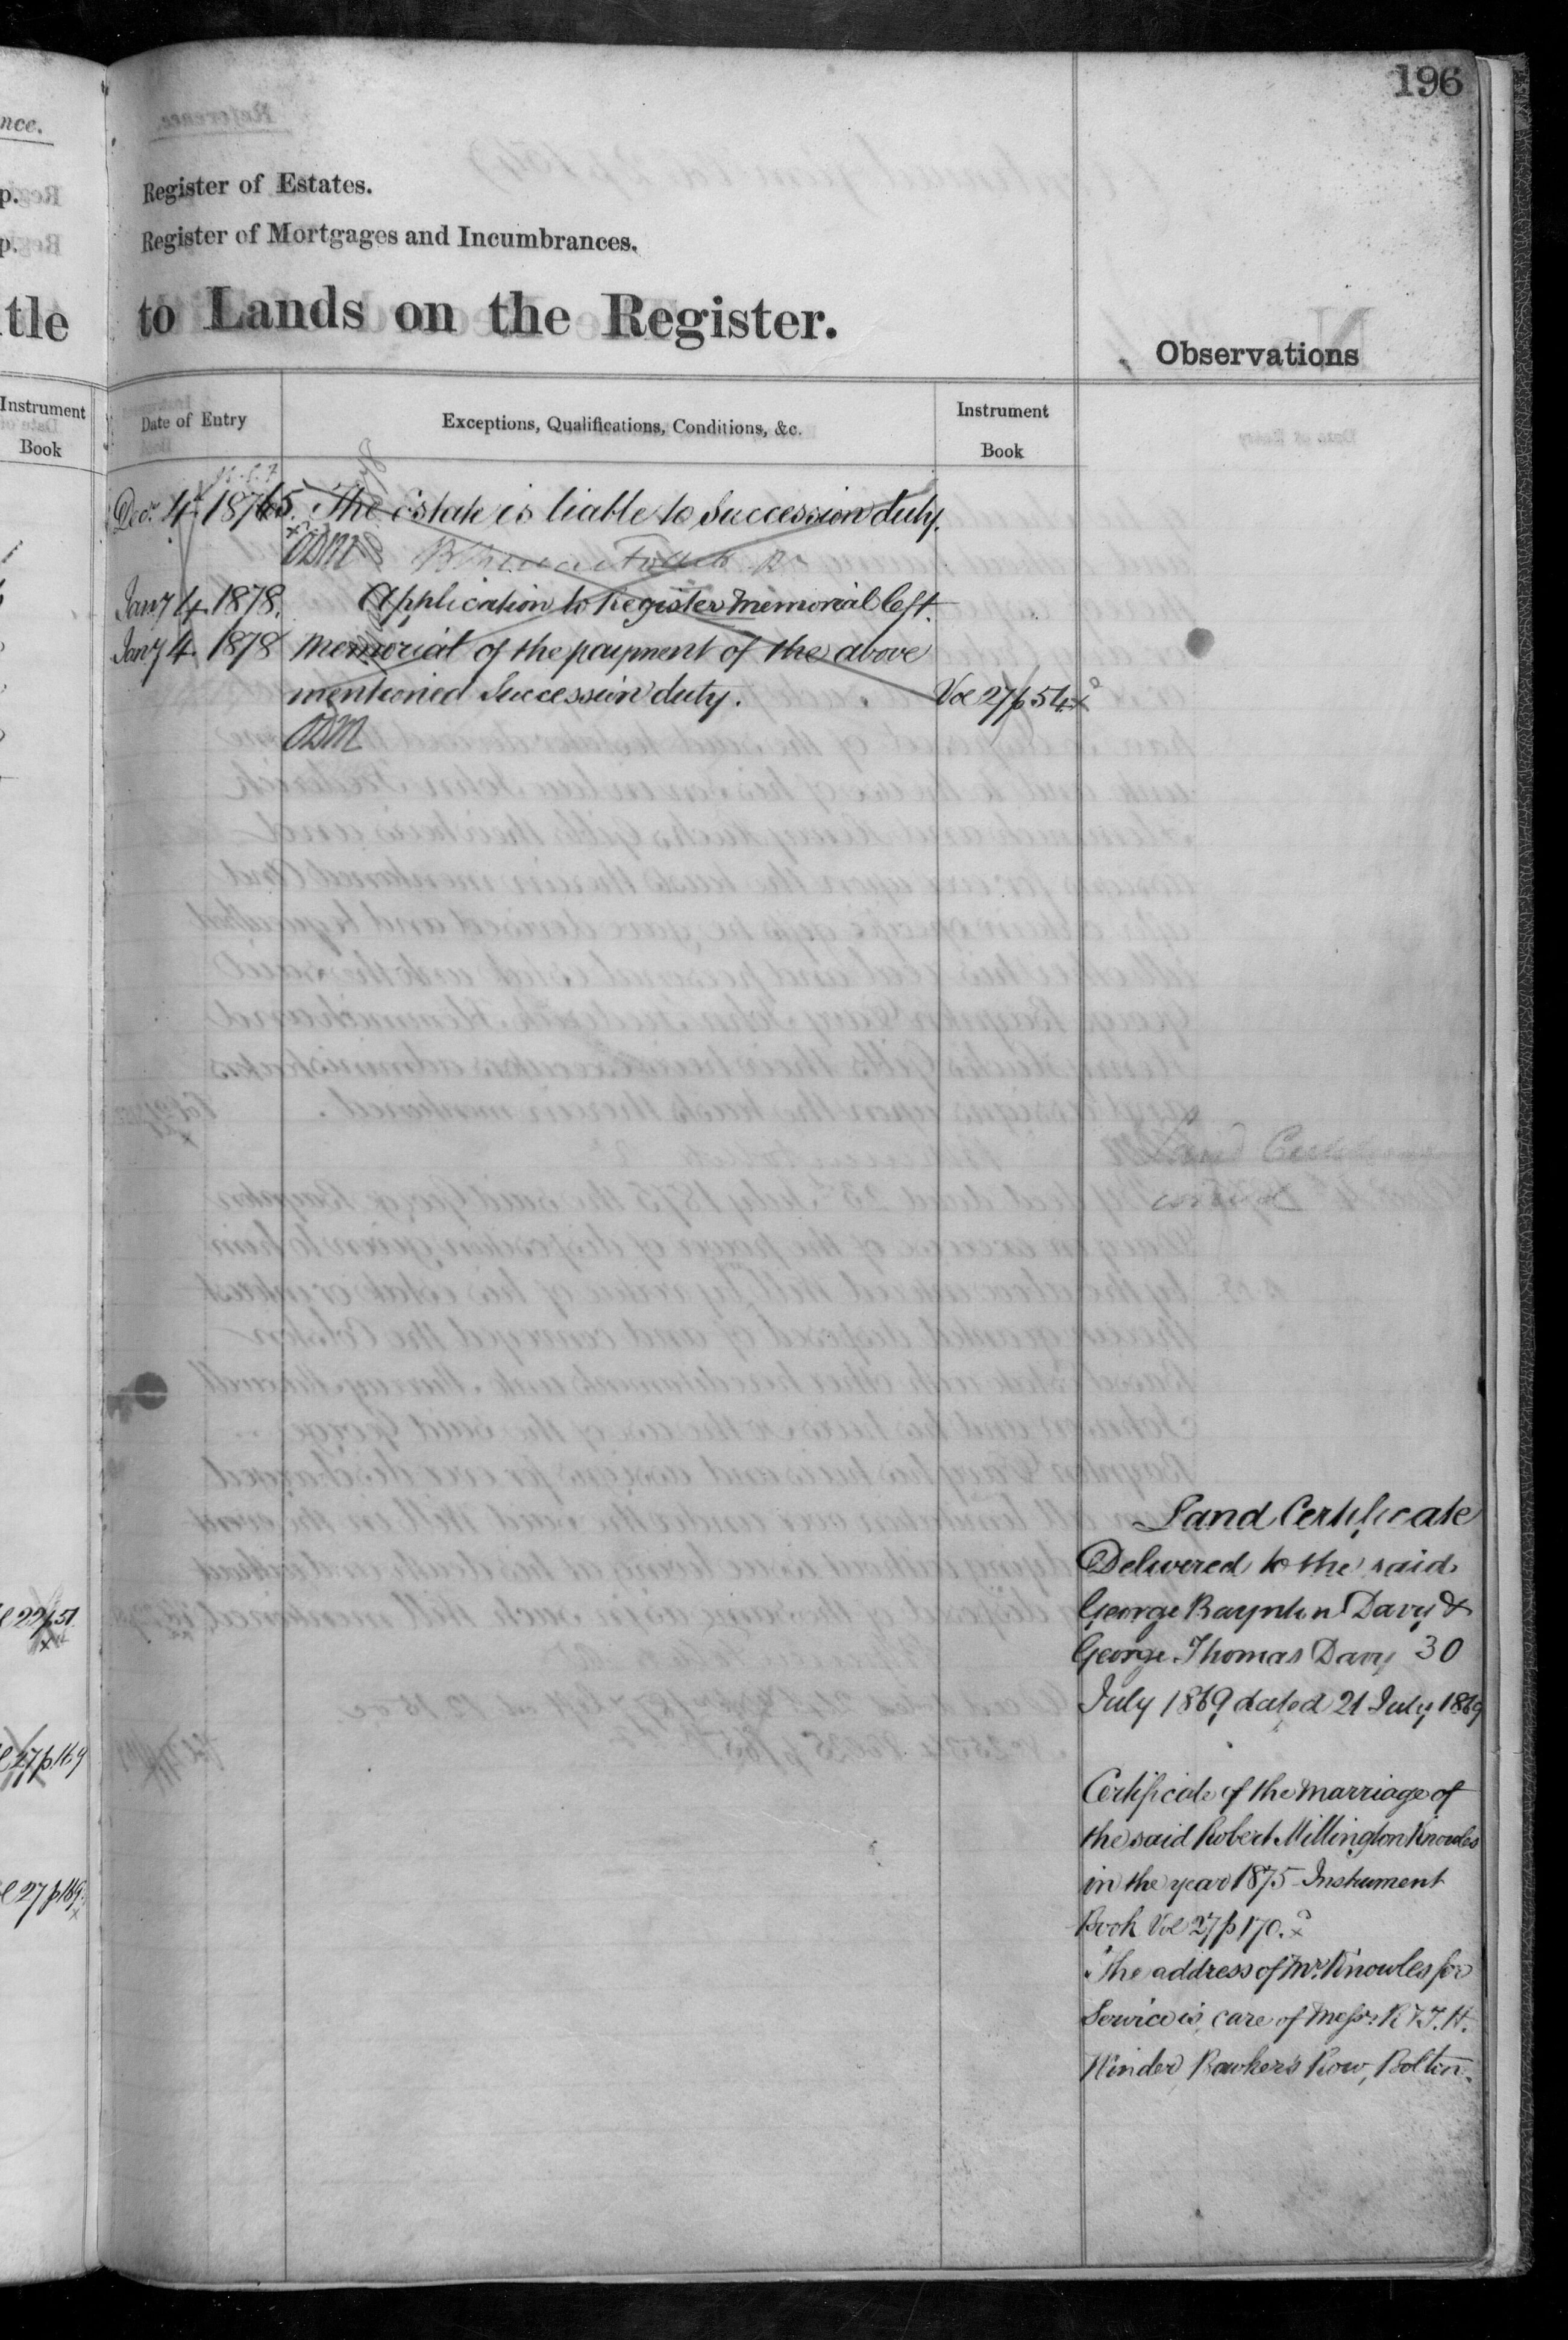 196
nce.
p.
p.
tle
Instrument
Book
Register of Estates.
Register of Mortgages and Incumbrances.
to Lands on the Register.
Observations
Date of Entry
Exceptions, Qualifications, Conditions, &c.
Instrument
Book
Decr. 4 1875. The Estate is liable to Succession duty.
Jany 4 1878. Application to Register Memorial left.
Jany 4 1878 Memorial of the payment of the above
mentioned Succession duty. Vol 27 p 54
Land Certificate
Land Certificate
Delivered to the said
George Bayntun Davy &
George Thomas Davy 30
July 1869 dated 21 July 1869
Certificate of the marriage of
the said Robert Millington Knowles
in the year 1875 Instrument
Book Vol 27 p 170.
The address of Mr. Knowles for
Service is, care of Messrs. R & J. H.
Winder Bowkers Row, Bolton.
l 22 p 51
l 27 p. 169
l 27 p 169